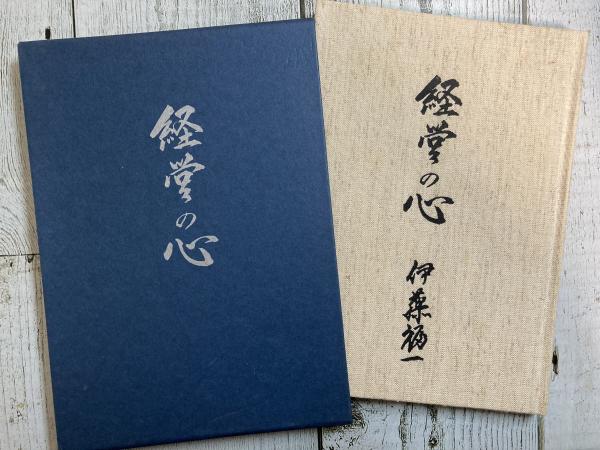 経営の心
経営の心
伊藤福一